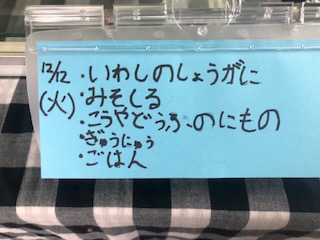 12/12・いわしのしょうがに
(火)・みそしる
・こうやどうふのにもの
・ぎゅうにゅう
・ごはん